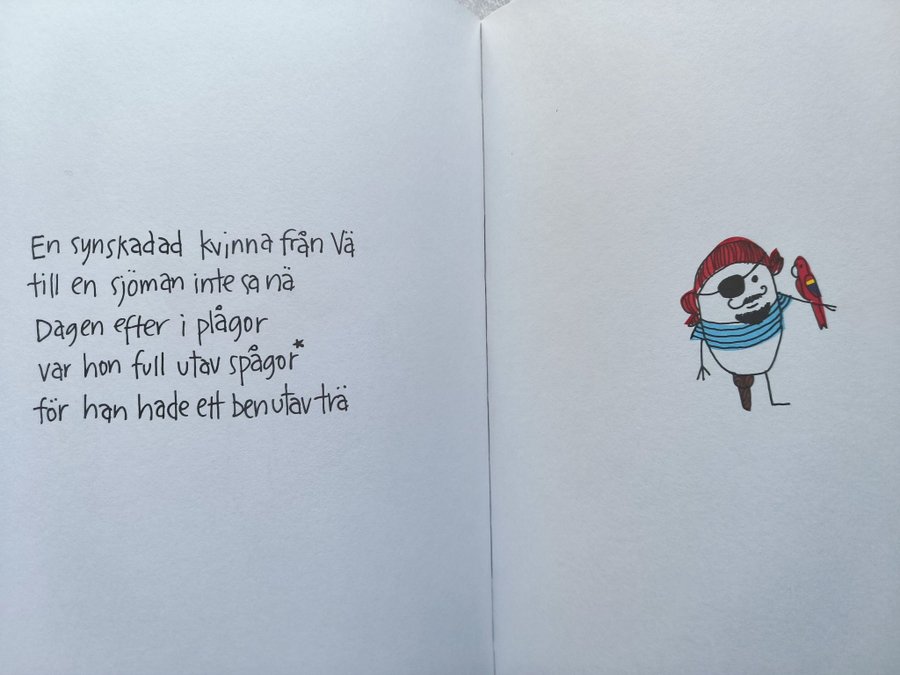 En synskadad kvinna från Vä
till en sjöman inte sa nä
Dagen efter i plågor
var hon full utav spågor*
för han hade ett ben utav trä